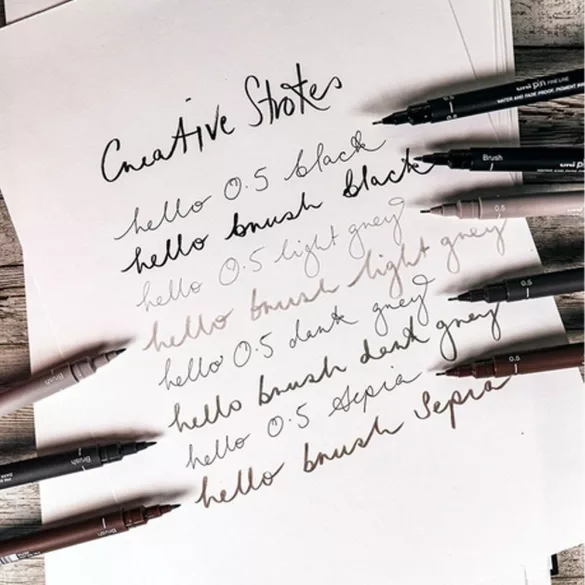 Creative Strokes
hello 0.5 black
hello brush black
hello 0.5 light grey
hello brush light grey
hello 0.5 dark grey
hello brush dark grey
hello 0.5 Sepia
hello brush Sepia
uni pin FINE LINE
WATER AND FADE PROOF, PIGMENT INK
Brush
uni pin
0.5
0.5
0.5
Brush
Brush
Brush